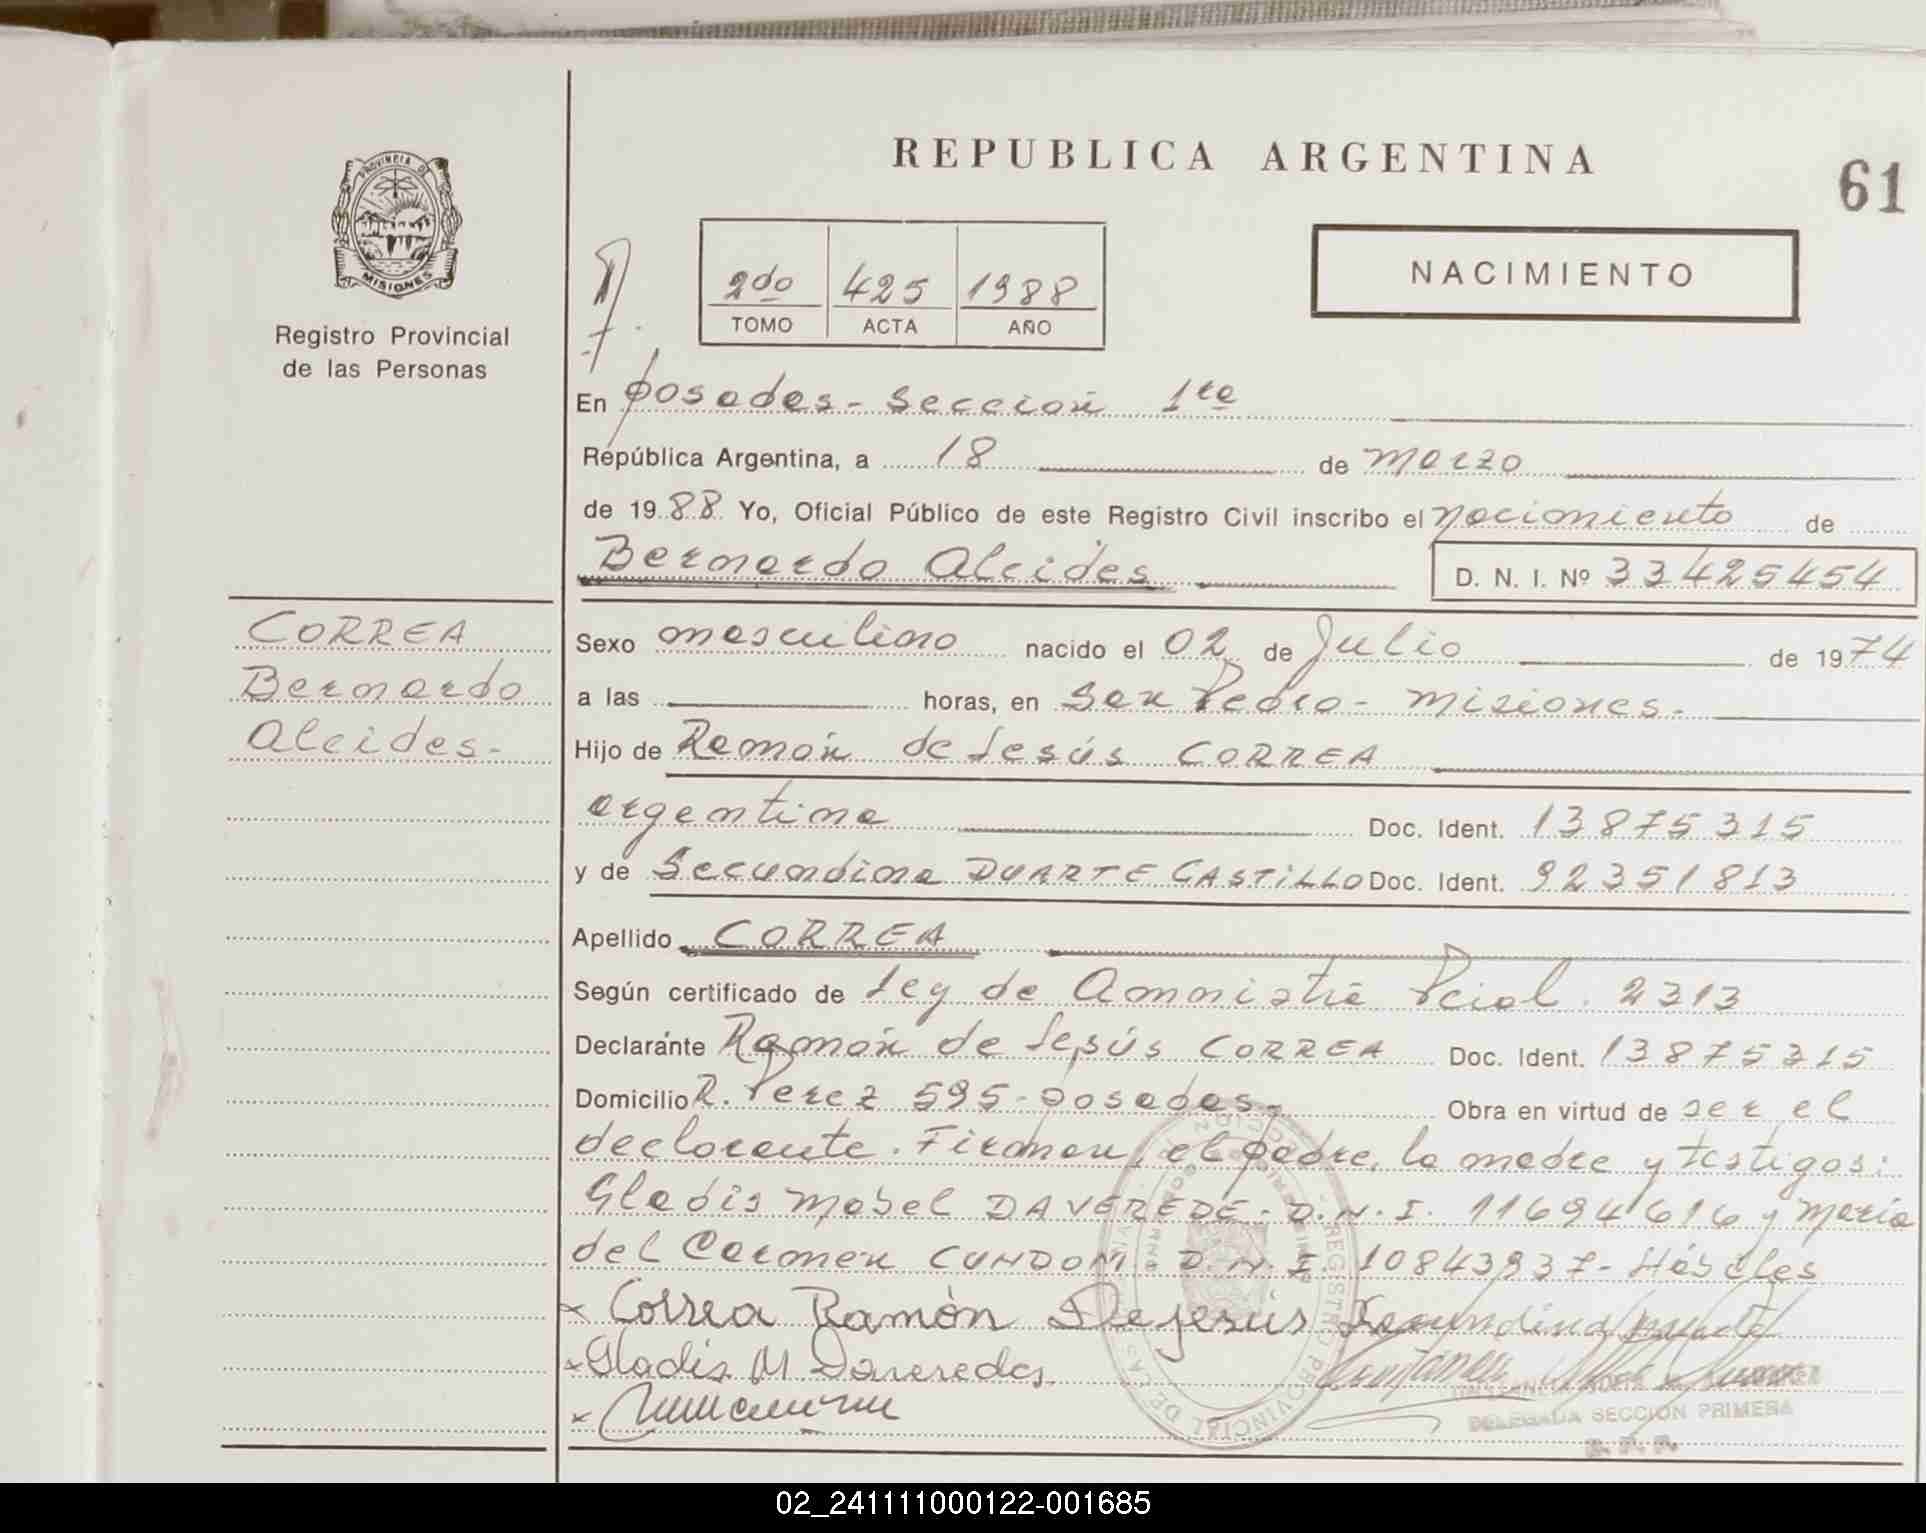 REPUBLICA ARGENTINA
61
PROVINCIA DE
MISIONES
Registro Provincial
de las Personas
2do 425 1988
TOMO ACTA AÑO
NACIMIENTO
En posadas - Sección 1ra
República Argentina, a 18 de marzo
de 1988 Yo, Oficial Público de este Registro Civil inscribo el nacimiento de
Bernardo Alcides D. N. I. Nº 33425454
CORREA
Bernardo
Alcides-
Sexo masculino nacido el 02 de Julio de 1974
a las horas, en San Pedro - Misiones-
Hijo de Ramón de Jesús CORREA
argentina Doc. Ident. 13875315
y de Secundina DUARTE CASTILLO Doc. Ident. 92351813
Apellido CORREA
Según certificado de Ley de Amnistia Pcial. 2313
Declarante Ramón de Jesús CORREA Doc. Ident. 13875315
Domicilio R. Perez 595-Posadas- Obra en virtud de ser el
declarante. Firman, el padre, la madre y testigos:
Gladis Mabel DAVEREDE - D.N.I. 11694616 y María
del Carmen CUNDOM - D.N.I. 10843937- Hábiles
x Correa Ramón De jesús Secundina
x Gladis M Daveredes
x
DELEGADA SECCION PRIMERA
R. P. P.
REGISTRO PROVINCIAL DE LAS
02_241111000122-001685